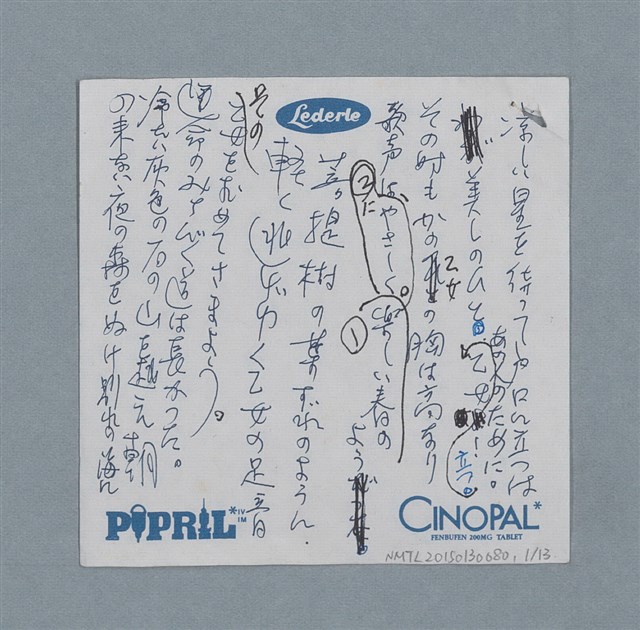 Lederle
涼しい星を待って戸口に立つは
美しのひと乙女 立つ。
あの人のために。
その時もかの乙女の胸は高なり
歌声はやさしく。楽しい春のよう
②に
①
菩提樹の葉ずれのように.
軽く近づく乙女の足音
その
乙女を求めてさまよう。
運命のみちびく道は長かった。
冷たい灰色の石の山を越え朝
の来ない夜の森をぬけ別れの海に
PIPRIL* IV IM
CINOPAL*
FENBUFEN 200MG TABLET
NMTL20150130680, 1/13